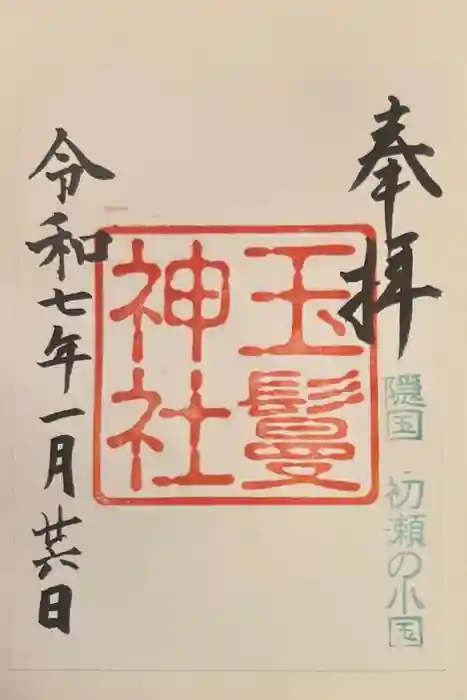 奉拝
隠国 初瀬の小国
玉鬘
神社
令和七年一月廿六日